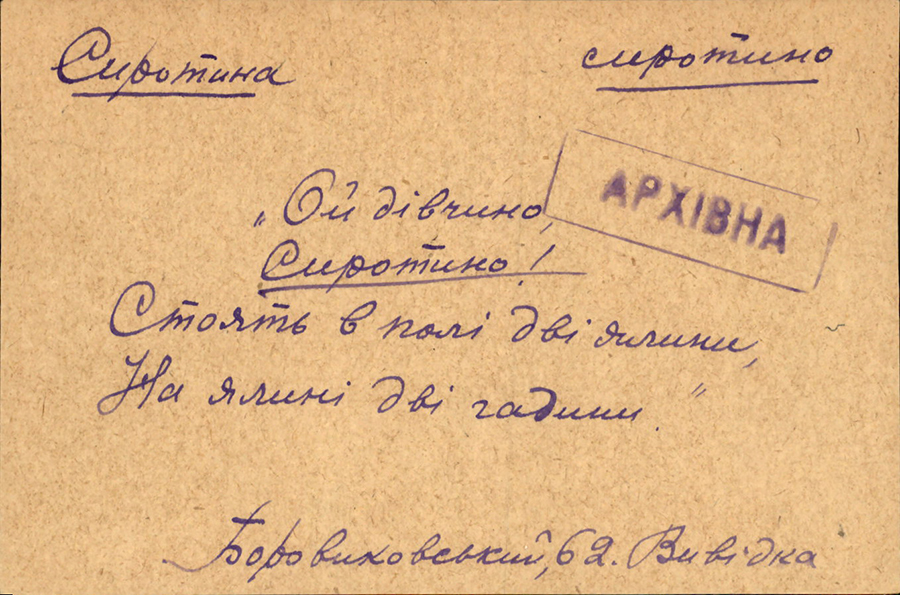 Сиротина
сиротино
АРХІВНА
„Ой дівчино,
Сиротино!
Стоять в полі дві ялини,
На ялині дві гадини."
Боровиковський, 62. Вивідка